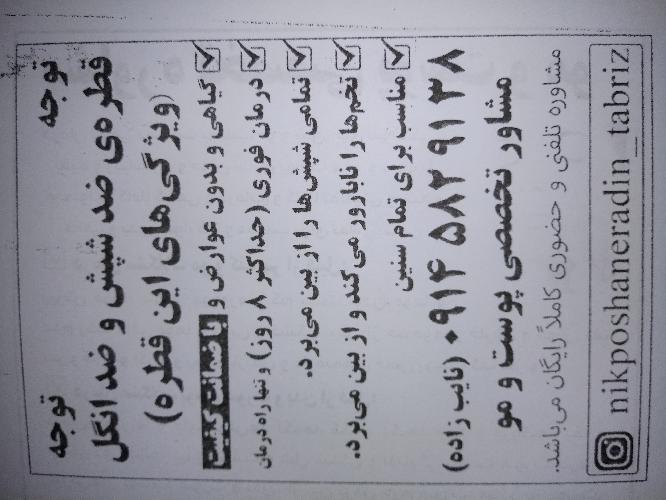 توجه توجه
قطره‌ی ضد شپش و ضد انگل
(ویژگی‌های این قطره)
گیاهی و بدون عوارض و با ضمانت کیفیت
درمان فوری (حداکثر ۸ روز) و تنها راه درمان
تمامی شپش‌ها را از بین می‌برد.
تخم‌ها را نابارور می‌کند و از بین می‌برد.
مناسب برای تمام سنین
۰۹۱۴ ۵۸۲ ۹۱ ۳۸ (نایب زاده)
مشاور تخصصی پوست و مو
مشاوره تلفنی و حضوری کاملاً رایگان می‌باشد.
nikposhaneradin_tabriz